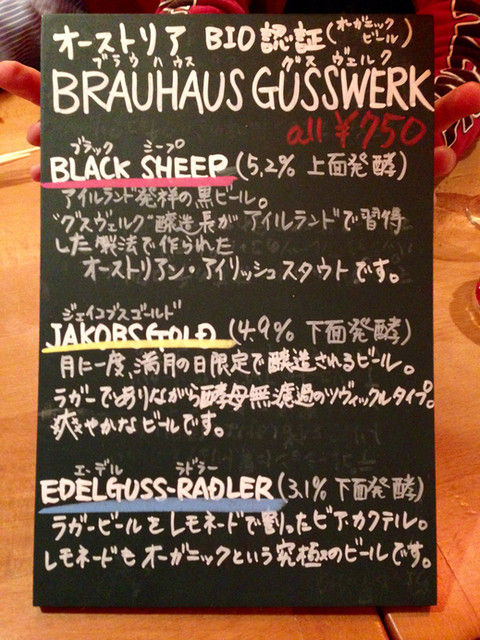 オーストリア BIO認証(オーガニックビール)
ブラウハウス グスヴェルク
BRAUHAUS GUSSWERK
all ¥750
ブラック シープ
BLACK SHEEP (5,2% 上面発酵)
アイルランド発様の黒ビール。
"グスヴェルク"醸造長がアイルランドで習得
した製法で作られた
オーストリアン・アイリッシュスタウトです。
ジェイコブスゴールド
JAKOBSGOLD (4.9% 下面発酵)
月に一度、満月の日限定で醸造されるビール。
ラガーでありながら酵母無濾過のツヴィックルタイプ。
爽やかなビールです。
エーデル ラドラー
EDELGUSS-RADLER (3,1% 下面発酵)
ラガービールをレモネードで割ったビア・カクテル。
レモネードもオーガニックという究極のビールです。